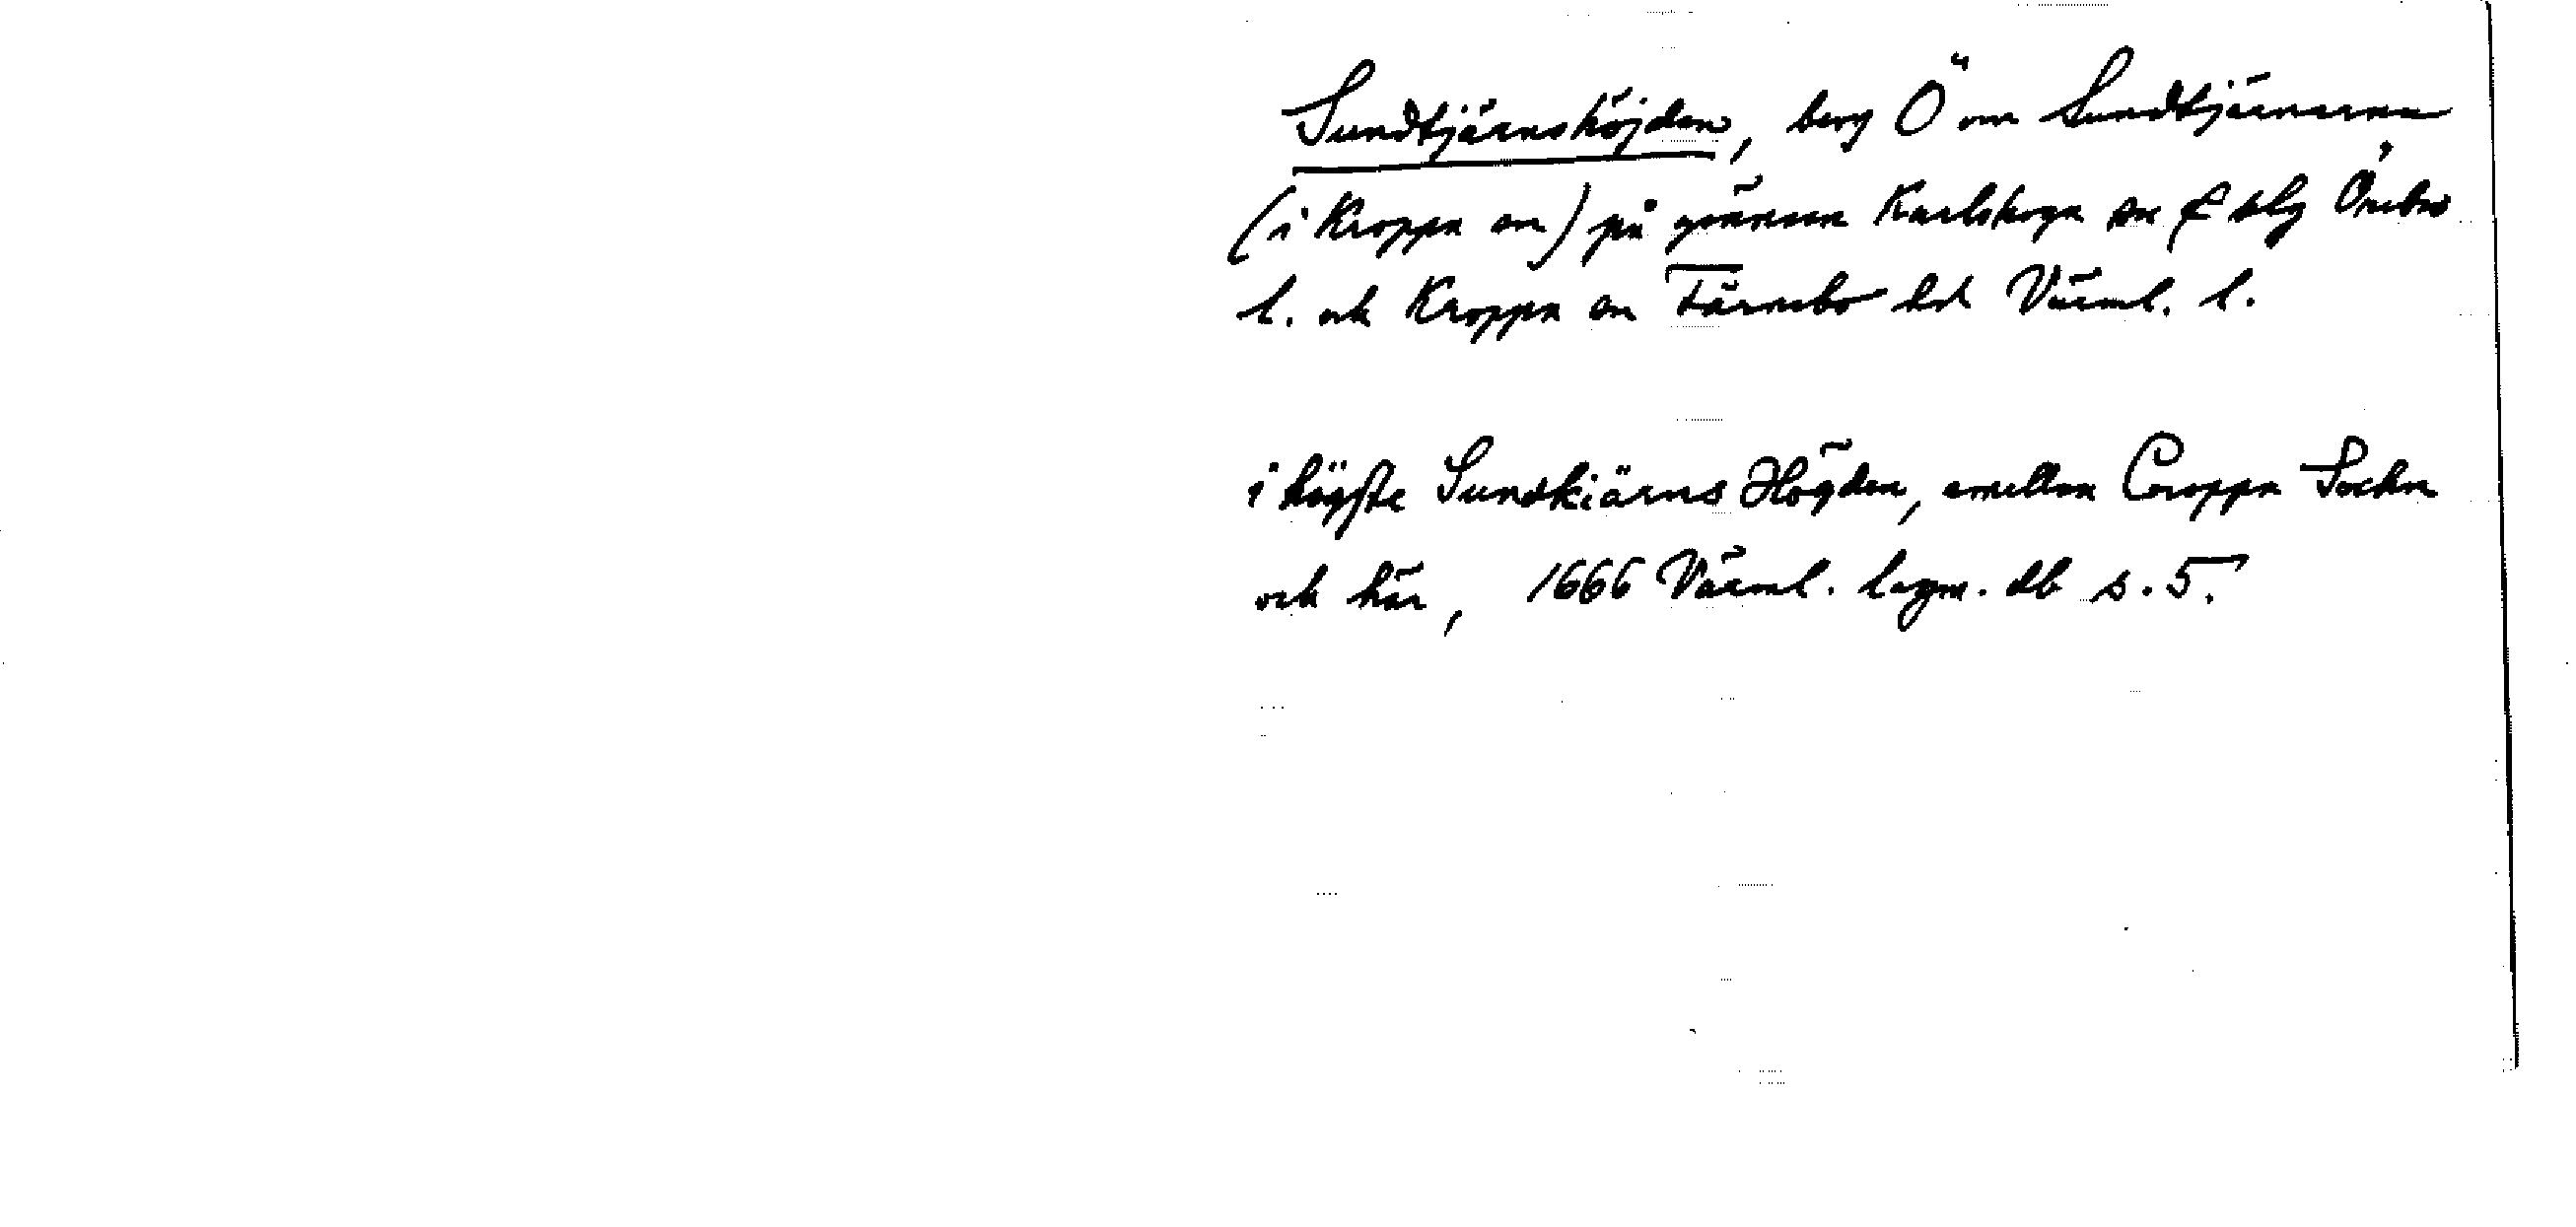 Sundtjärnshöjden, berg Ö om Sundtjärnarna
(i Kroppa sn) på gränsen Karlskoga sn o blg Örebro
l. och Kroppa sn Färnebo hd Värml. l.
i högste Sundkiärns Högden, emellan Croppa Sochn
och här, 1666 Värml. lagm. db s. 5.